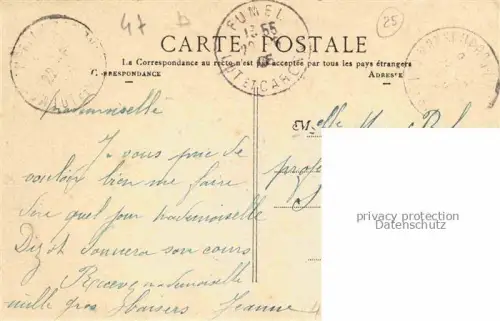 47
25
FUMEL
13 55
LOT ET GARONNE
CARTE POSTALE
La Correspondance au recto n'est pas acceptée par tous les pays étrangers
CORRESPONDANCE
ADRESSE
Mademoiselle
Je vous prie de
vouloir bien me faire
dire quel jour Mademoiselle
Dizot donnera son cours
Recevez mademoiselle
mille gros baisers Jeanne
Melle
profes
privacy protection
Datenschutz